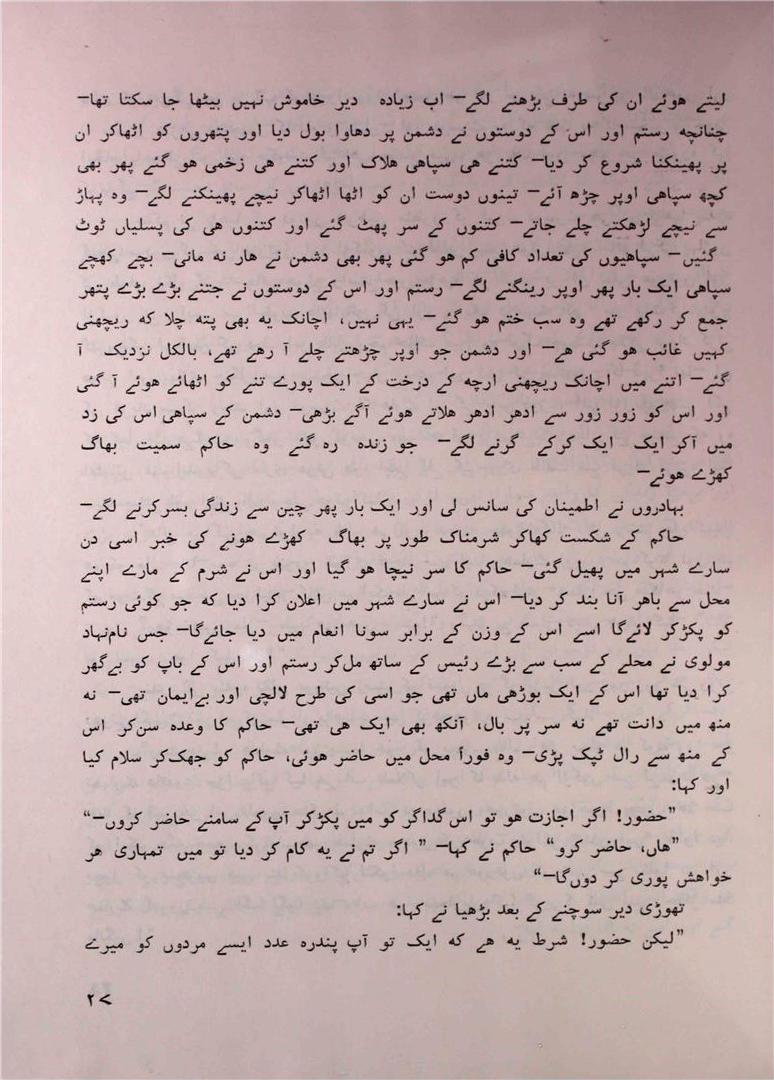 لیتے هوئے ان کی طرف بڑھنے لگے— اب زیادہ دیر خاموش نہیں بیٹھا جا سکتا تھا—
چنانچه رستم اور اس کے دوستوں نے دشمن پر دھاوا بول دیا اور پتھروں کو اٹھاکر ان
پر پھینکنا شروع کر دیا— کتنے هی سپاهی هلاک اور کتنے هی زخمی هو گئے پھر بھی
کچھ سپاهی اوپر چڑھ آئے— تینوں دوست ان کو اٹھا اٹھاکر نیچے پھینکنے لگے— وہ پہاڑ
سے نیچے لڑھکتے چلے جاتے— کتنوں کے سر پھٹ گئے اور کتنوں هی کی پسلیاں ٹوٹ
گئیں— سپاهیوں کی تعداد کافی کم هو گئی پھر بھی دشمن نے هار نه مانی— بچے کھچے
سپاهی ایک بار پھر اوپر رینگنے لگے— رستم اور اس کے دوستوں نے جتنے بڑے بڑے پتھر
جمع کر رکھے تھے وہ سب ختم هو گئے— یہی نہیں، اچانک یه بھی پته چلا که ریچھنی
کہیں غائب هو گئی هے— اور دشمن جو اوپر چڑھتے چلے آ رهے تھے، بالکل نزدیک آ
گئے— اتنے میں اچانک ریچھنی ارچه کے درخت کے ایک پورے تنے کو اٹھائے هوئے آ گئی
اور اس کو زور زور سے ادھر ادھر هلاتے هوئے آگے بڑھی— دشمن کے سپاهی اس کی زد
میں آکر ایک ایک کرکے گرنے لگے— جو زندہ رہ گئے وہ حاکم سمیت بھاگ
کھڑے هوئے—
بہادروں نے اطمینان کی سانس لی اور ایک بار پھر چین سے زندگی بسرکرنے لگے—
حاکم کے شکست کھاکر شرمناک طور پر بھاگ کھڑے هونے کی خبر اسی دن
سارے شہر میں پھیل گئی— حاکم کا سر نیچا هو گیا اور اس نے شرم کے مارے اپنے
محل سے باهر آنا بند کر دیا— اس نے سارے شہر میں اعلان کرا دیا که جو کوئی رستم
کو پکڑکر لائےگا اسے اس کے وزن کے برابر سونا انعام میں دیا جائےگا— جس نام‌نہاد
مولوی نے محلے کے سب سے بڑے رئیس کے ساتھ مل‌کر رستم اور اس کے باپ کو بے‌گھر
کرا دیا تھا اس کے ایک بوڑھی ماں تھی جو اسی کی طرح لالچی اور بےایمان تھی— نه
منھ میں دانت تھے نه سر پر بال، آنکھ بھی ایک هی تھی— حاکم کا وعدہ سن‌کر اس
کے منھ سے رال ٹپک پڑی— وہ فوراً محل میں حاضر هوئی، حاکم کو جھک‌کر سلام کیا
اور کہا:
”حضور! اگر اجازت هو تو اس گداگر کو میں پکڑکر آپ کے سامنے حاضر کروں—“
”هاں، حاضر کرو“ حاکم نے کہا— ” اگر تم نے یه کام کر دیا تو میں تمہاری هر
خواهش پوری کر دوں‌گا—“
تھوڑی دیر سوچنے کے بعد بڑھیا نے کہا:
”لیکن حضور! شرط یه هے که ایک تو آپ پندرہ عدد ایسے مردوں کو میرے
۲۷